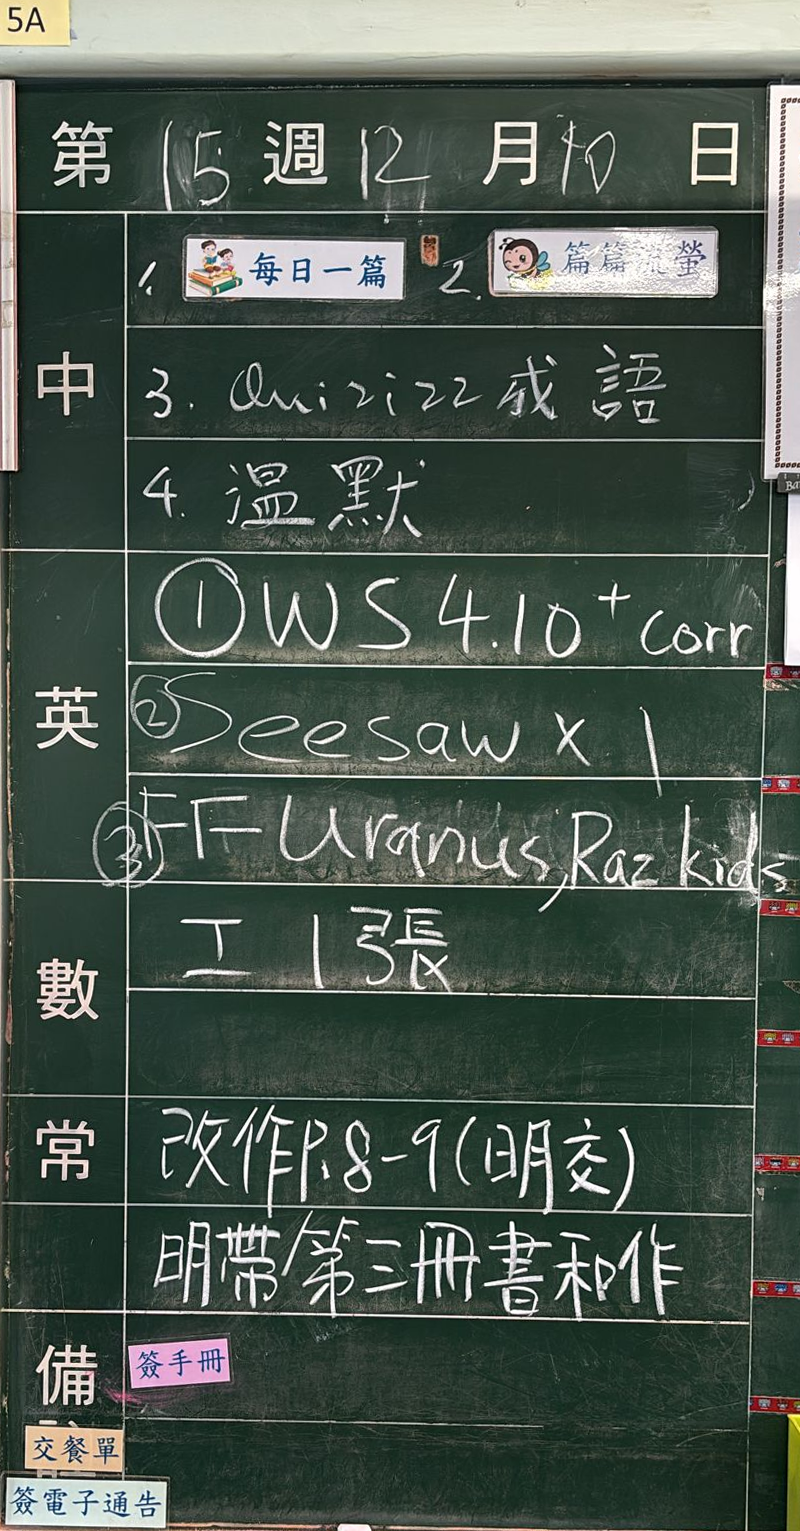 5A
第 15 週 12 月 10 日
中
1. 每日一篇 2. 篇篇流螢
3. Quizizz 成語
4. 溫默
英
① WS 4.10 + corr
② Seesaw x 1
③ FF Uranus, Raz kids
數
工 1 張
常
改作P.8-9(明交)
明帶第三冊書和作
備
簽手冊
交餐單
簽電子通告